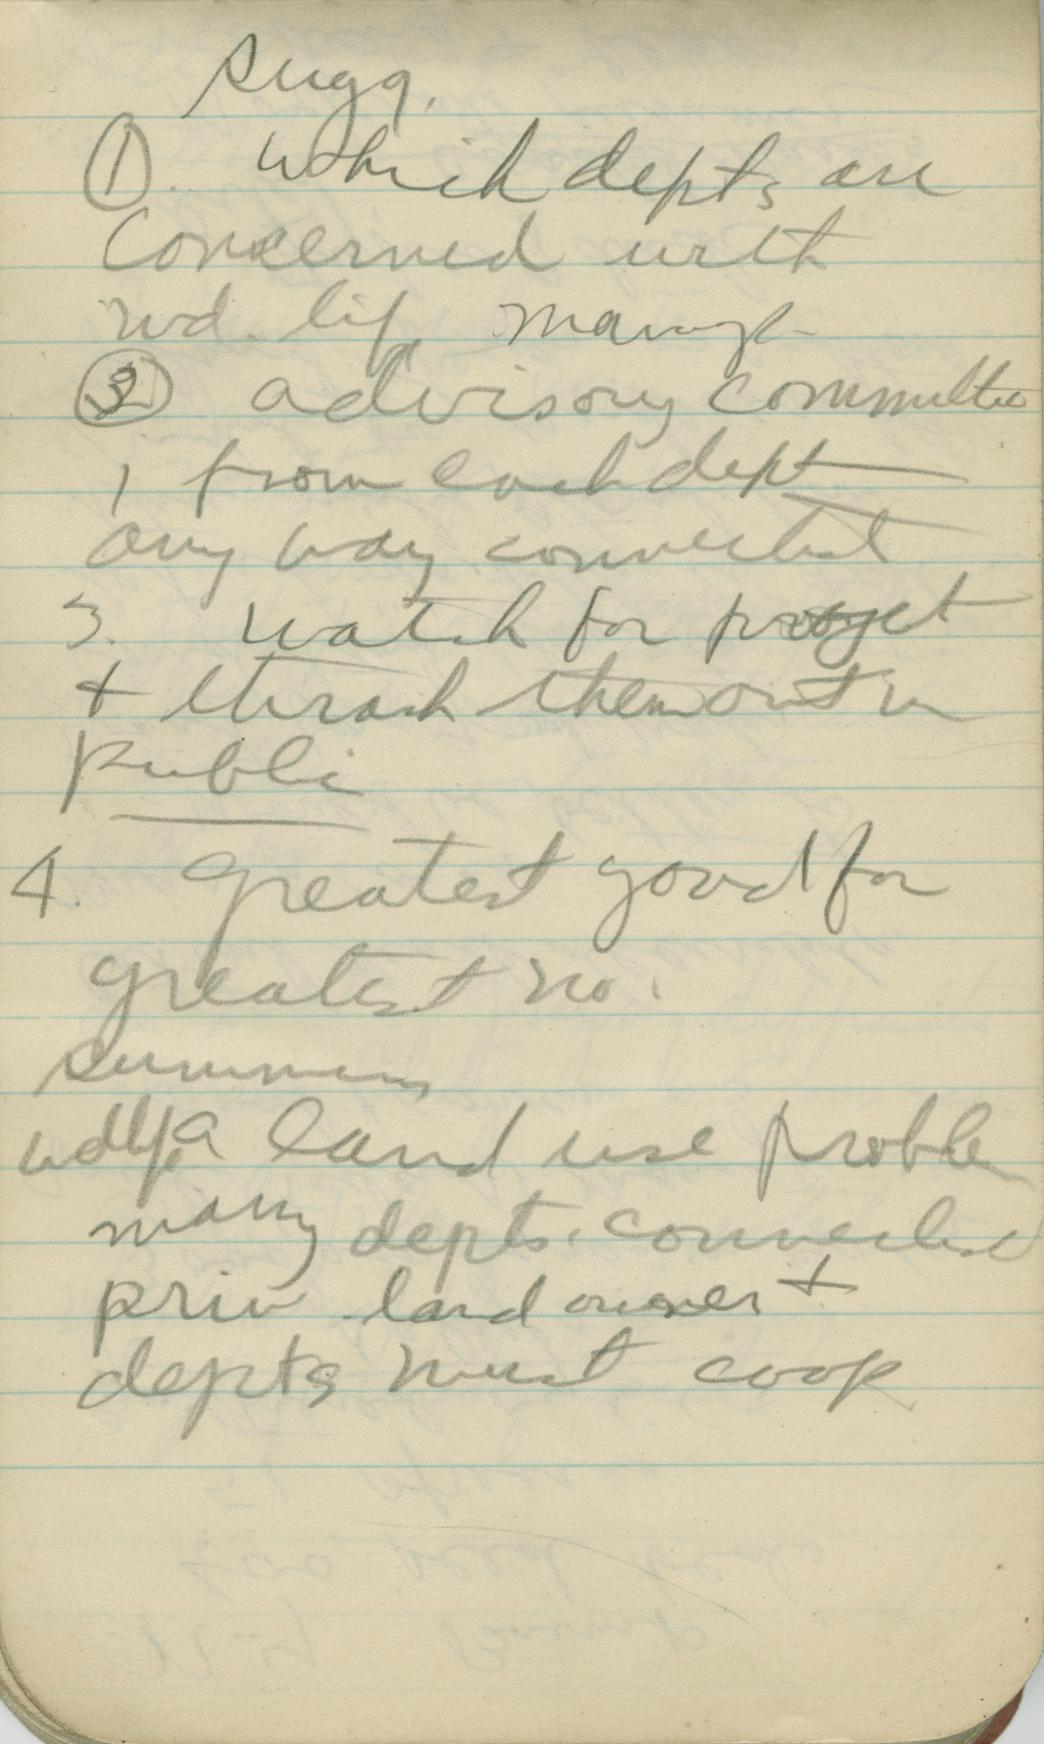 Sugg.
①. Which depts are
Concerned with
wd. lif manag
② advisory committee
1 from each dept
any way connected
3. watch for project
+ thrash them out in
public
4. Greatest good for
greatest no.
Summary
wdlf a land use problem
many depts. connected
priv land owner +
depts must coop